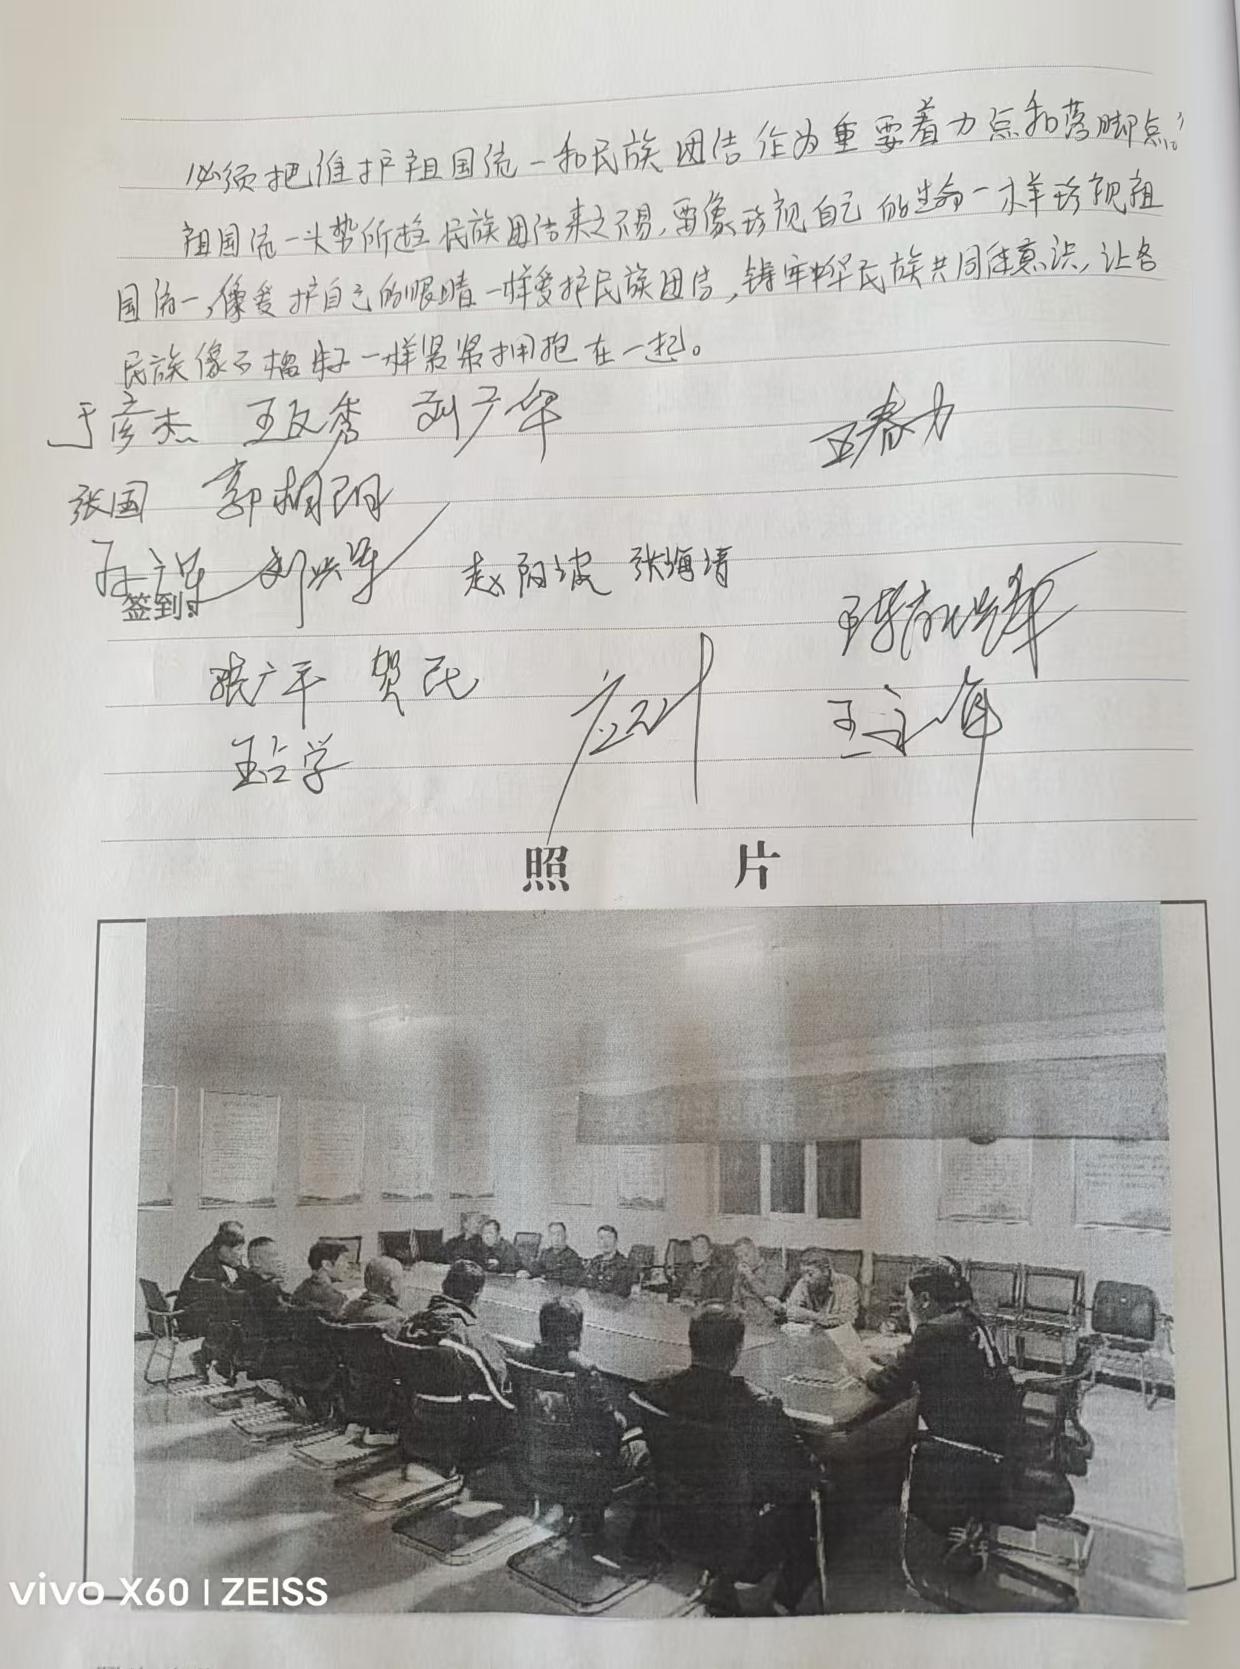 必须把维护祖国统一和民族团结作为重要着力点和落脚点。
祖国统一大势所趋 民族团结来之不易,要像珍视自己的生命一样珍视祖
国统一,像爱护自己的眼睛一样爱护民族团结,铸牢中华民族共同体意识,让各
民族像石榴籽一样紧紧拥抱在一起。
于彦杰 王反秀 刘广华 王春力
张国 郭相阳
刘兴军 赵阳波 张海清
签到:
张广平 贺民
王占学 王立军
照 片
vivo X60 | ZEISS